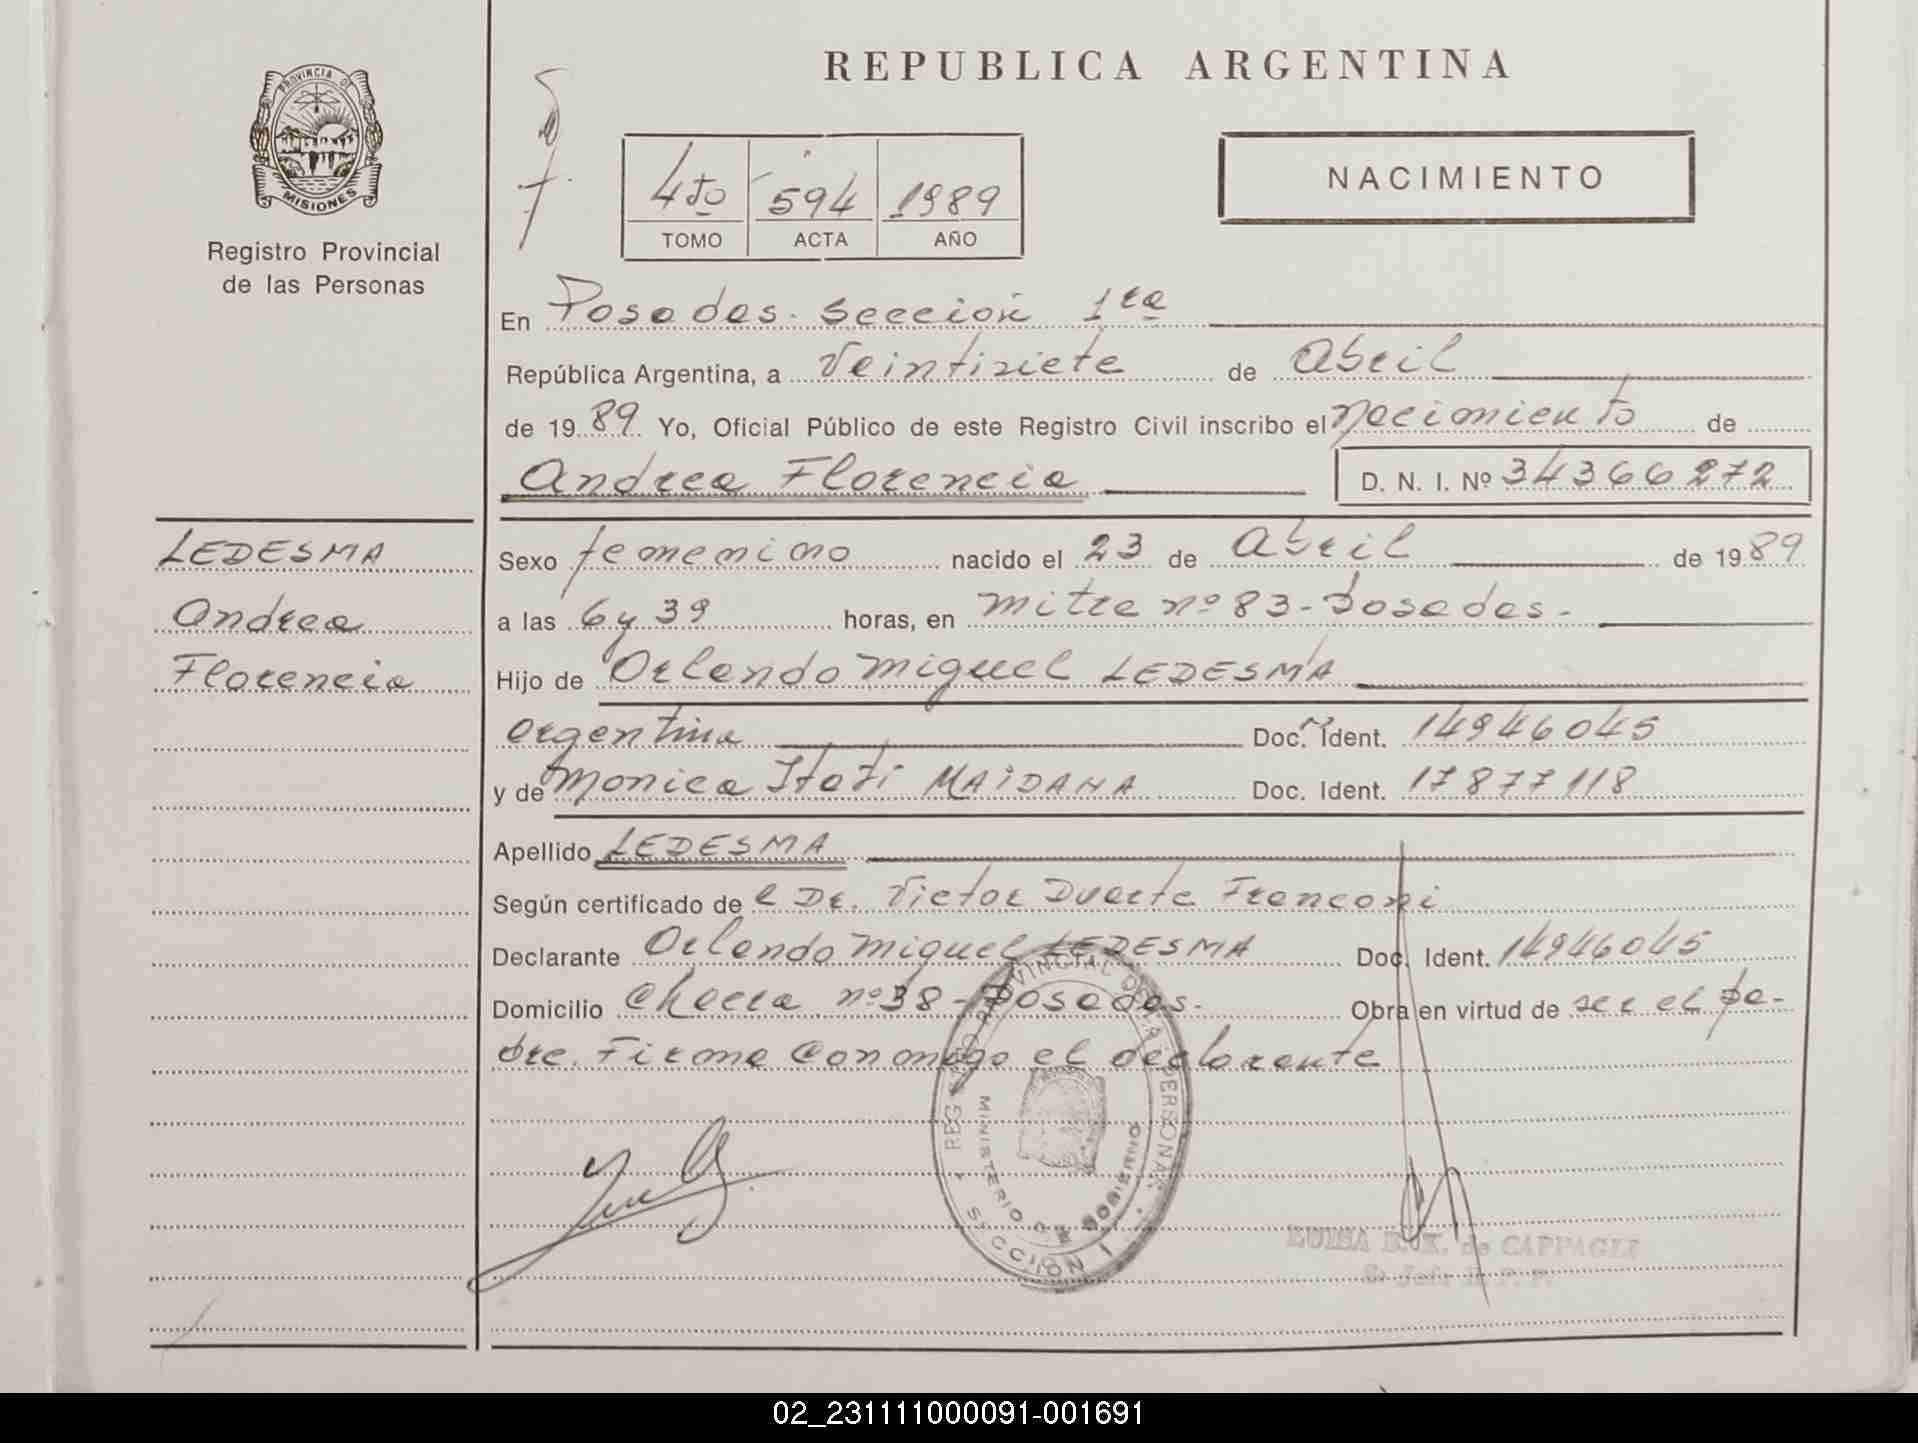 PROVINCIA DE
MISIONES
Registro Provincial
de las Personas
REPUBLICA ARGENTINA
4to 594 1989
TOMO ACTA AÑO
NACIMIENTO
En Posadas. Sección 1ra
República Argentina, a Veintisiete de Abril
de 1989 Yo, Oficial Público de este Registro Civil inscribo el nacimiento de
Andrea Florencia D. N. I. Nº 34366272
LEDESMA
Andrea
Florencia
Sexo femenino nacido el 23 de Abril de 1989
a las 6 y 39 horas, en Mitre nº 83 - Posadas.-
Hijo de Orlando Miguel LEDESMA
Argentina Doc. Ident. 14946045
y de Monica Itatí MAIDANA Doc. Ident. 17877118
Apellido LEDESMA
Según certificado de l Dr. Victor Duarte Franconi
Declarante Orlando Miguel LEDESMA Doc. Ident. 14946045
Domicilio Chacra nº 38 - Posadas.- Obra en virtud de ser el pa-
dre. Firma Conmigo el declarante
REGISTRO PROVINCIAL DE LAS PERSONAS
MINISTERIO DE GOBIERNO
SECCION 1
LUISA de CAPPAGLI
02_231111000091-001691